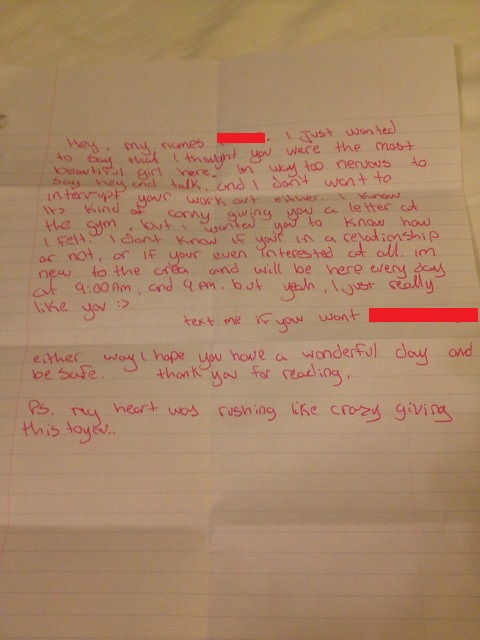 Hey, my names . I just wanted
to say that I thought you were the most
beautiful girl here. Im way too nervous to
say hey and talk, and I don't want to
interrupt your work out either. I know
its kind of corny giving you a letter at
the gym, but I wanted you to know how
I felt. I dont know if your in a relationship
or not, or if your even interested at all. im
new to the area and will be here every day
at 9:00 Am, and 9 Am. but yeah, I just really
like you :>
text me if you want
either way I hope you have a wonderful day and
be safe. thank you for reading.
Ps. my heart was rushing like crazy giving
this to you..